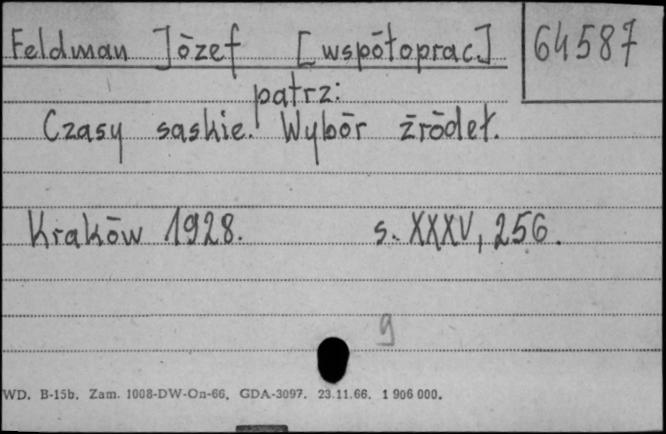 Feldman Józef [współoprac.] 64587
patrz:
Czasy saskie. Wybór źródeł.
Kraków 1928. s. XXXV, 256.
9
WD. B-15b. Zam. 1008-DW-On-66. GDA-3097. 23.11.66. 1 906 000.